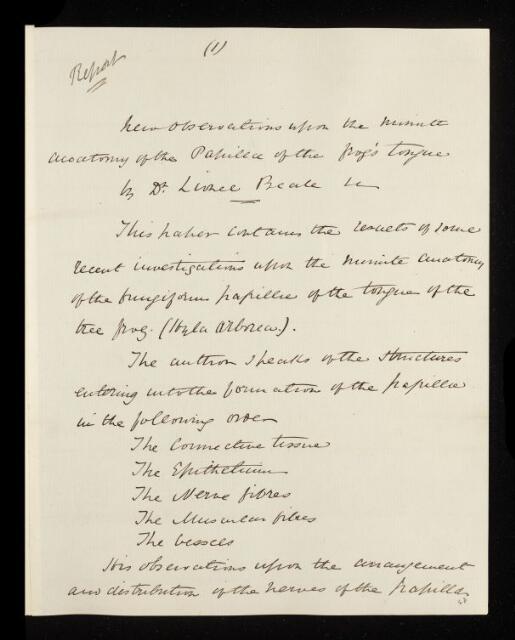 (1)
Report
New observations upon the minute
anatomy of the Papillæ of the frog's tongue
by Dr. Lionel Beale
This paper contains the results of some
recent investigations upon the minute anatomy
of the fungiform papillæ of the tongue of the
tree frog. (Hyla arborea.).
The author speaks of the structures
entering into the formation of the papillæ
in the following order
The Connective tissue
The Epithelium
The Nerve fibres
The Muscular fibres
The vessels
His observations upon the arrangement
and distribution of the nerves of the papillæ